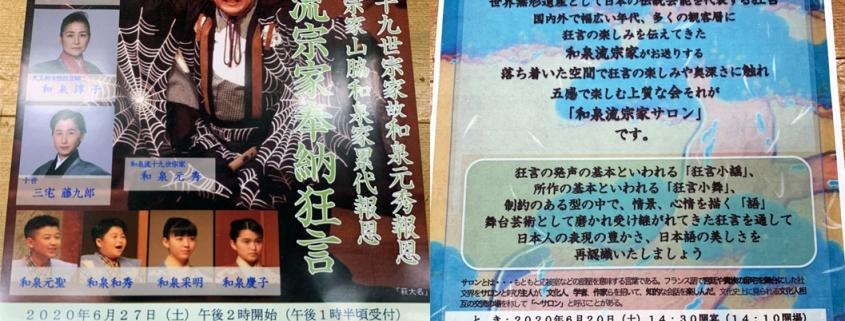 十九世宗家故和泉元秀報恩
宗家山脇和泉家累代報恩
流宗家奉納狂言
和泉淳子
十世
三宅 藤九郎
和泉流十九世宗家
和泉元秀
和泉元聖
和泉和秀
和泉采明
和泉慶子
「萩大名」
2020年6月27日（土）午後2時開始（午後1時半頃受付）
世界無形遺産として日本の伝統芸能を代表する狂言
国内外で幅広い年代、多くの観客層に
狂言の楽しみを伝えてきた
和泉流宗家がお送りする
落ち着いた空間で狂言の楽しみや奥深さに触れ
五感で楽しむ上質な会それが
「和泉流宗家サロン」
です。
狂言の発声の基本といわれる「狂言小謡」、
所作の基本といわれる「狂言小舞」、
制約のある型の中で、情景、心情を描く「語」
舞台芸術として磨かれ受け継がれてきた狂言を通して
日本人の表現の豊かさ、日本語の美しさを
再認識いたしましょう
サロンとは・・・もともと応接室などの部屋を意味する言葉である。フランス語で宮廷や貴族の邸宅を舞台にした社
交界をサロンと呼び主人が、文化人、学者、作家らを招いて、知的な会話を楽しんだ。文化史上に見られる文化人相
互の交流の場を称して「～サロン」と呼ぶことがある。
とき：2020年6月20日（土）14：30開宴（14：10開場）